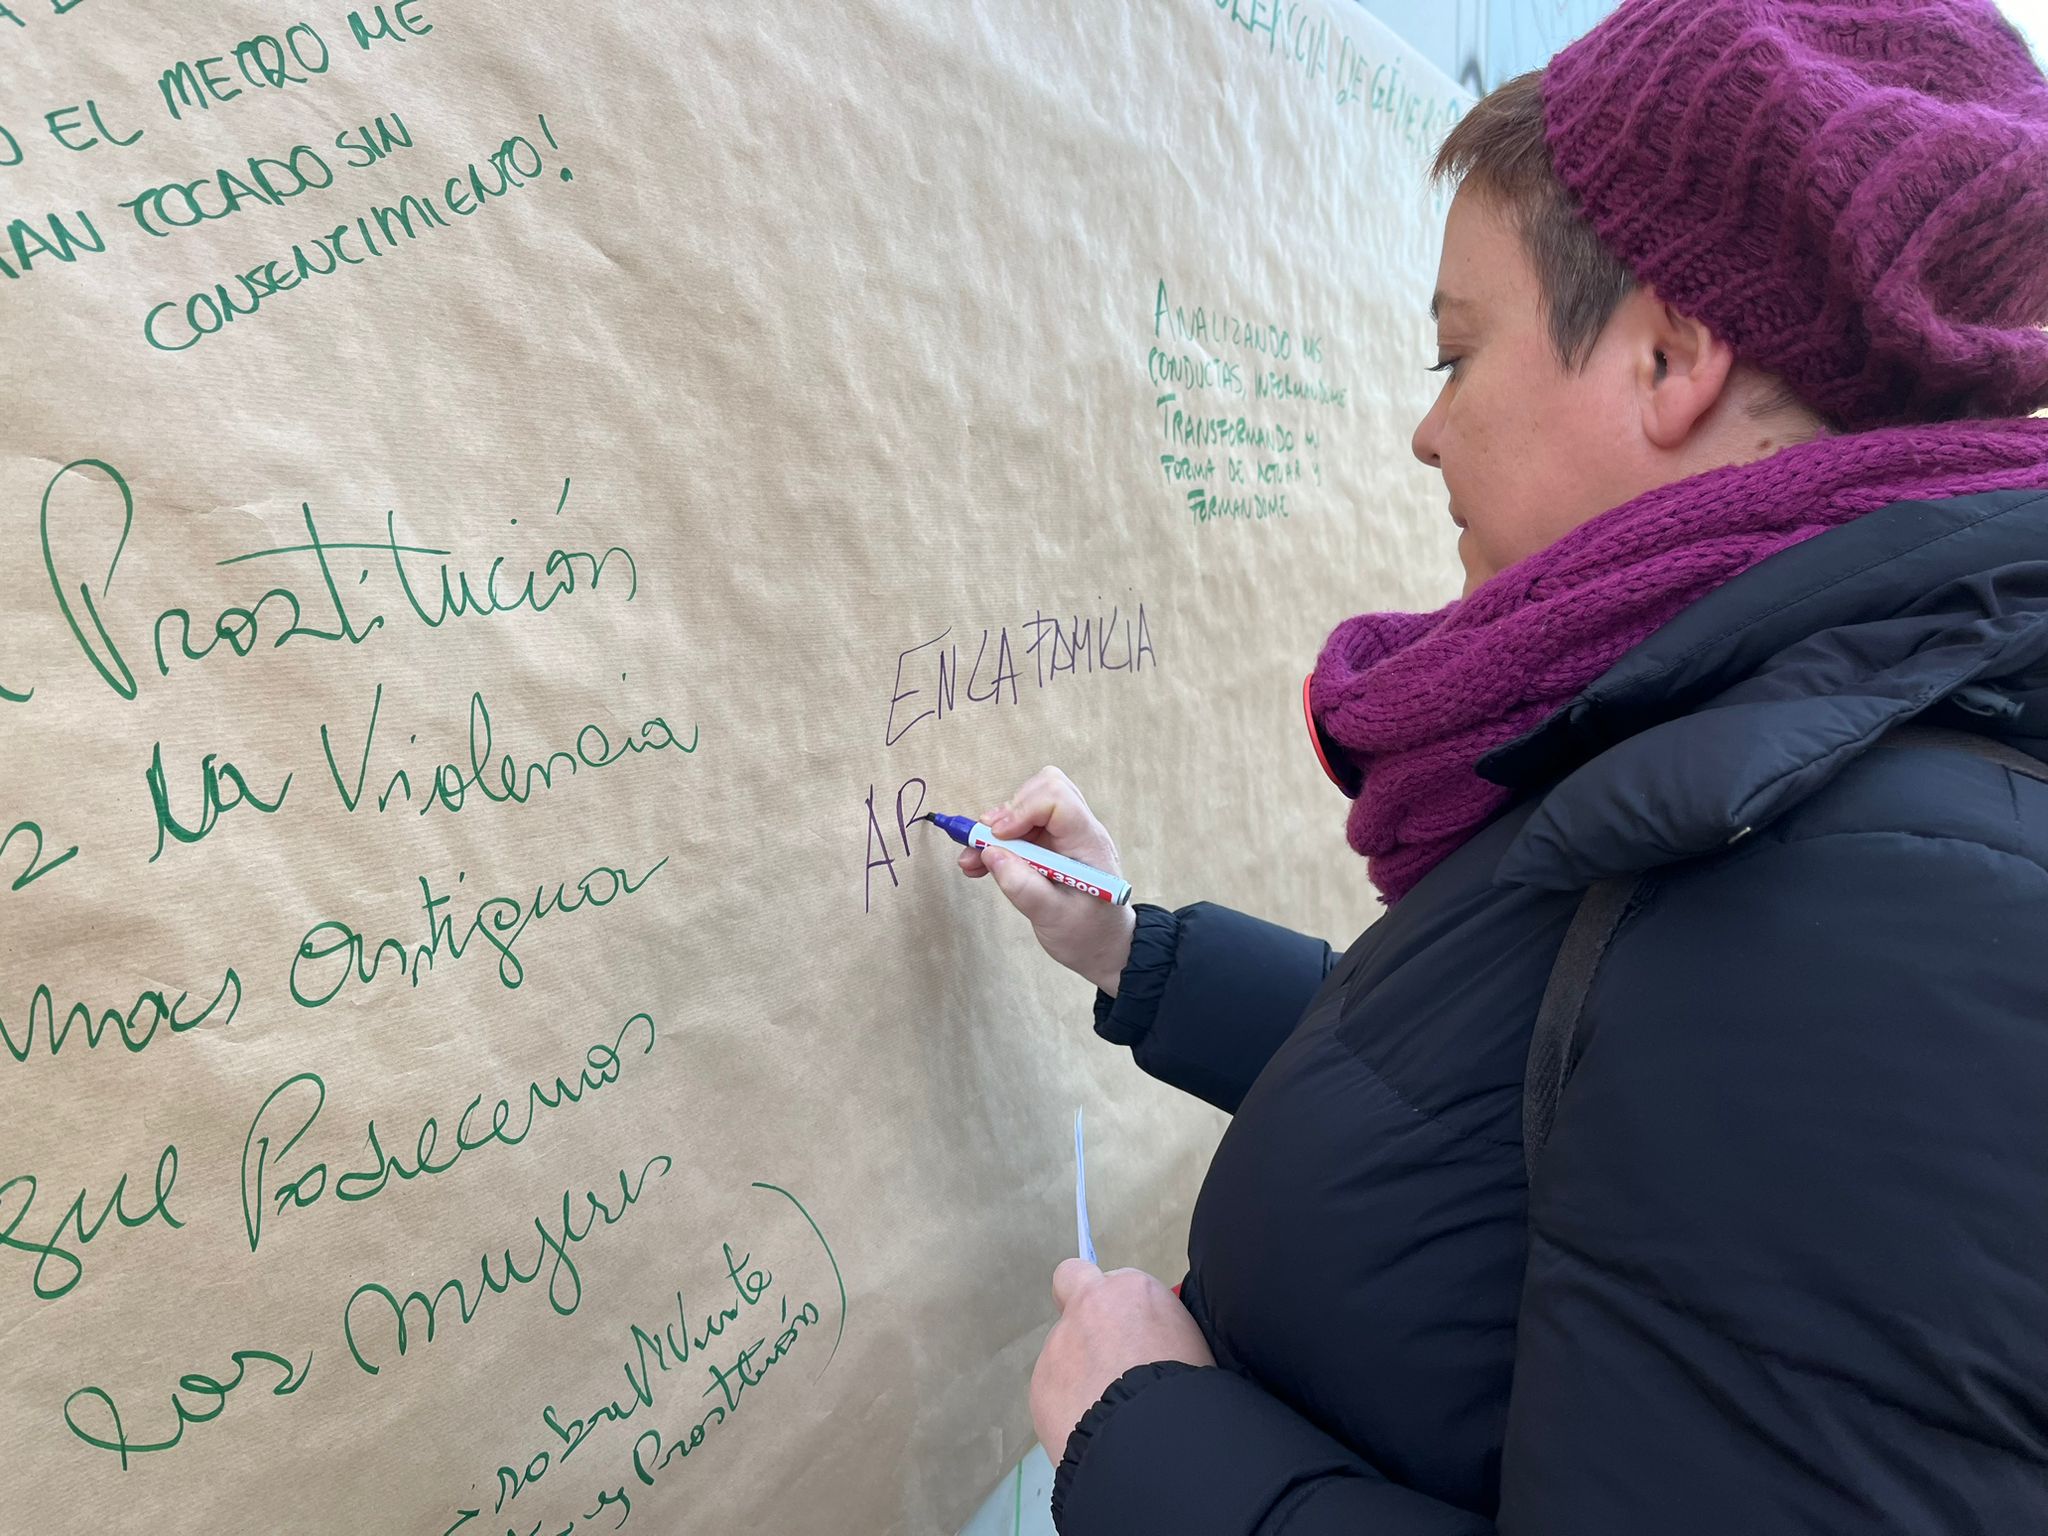 EL METRO ME
HAN TOCADO SIN
CONSENTIMIENTO!
VIOLENCIA DE GÉNERO?
ANALIZANDO MIS
CONDUCTAS, INFORMANDOME
TRANSFORMANDO MI
FORMA DE ACTUAR Y
FORMANDOME
Prostitución
la Violencia
mas Antigua
que Padecemos
las mujeres
sobreviviente
Prostitución)
EN LA FAMILIA
AR
3300